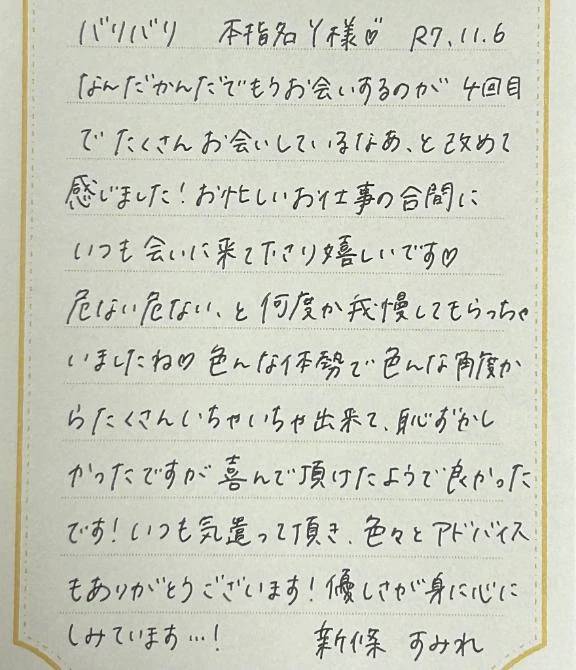 バリバリ 本指名 Y様♡ R7.11.6
なんだかんだでもうお会いするのが 4回目
で たくさん お会いしているなあ、と改めて
感じました！お忙しいお仕事の合間に
いつも 会いに来て下さり嬉しいです♡
危ない危ない、と 何度か我慢してもらっちゃ
いましたね♡ 色んな体勢で色んな角度か
らたくさんいちゃいちゃ出来て、恥ずかし
かったですが 喜んで頂けたようで良かった
です！いつも気遣って頂き、色々とアドバイス
もありがとうございます！優しさが身に心に
しみています…！ 新條 すみれ